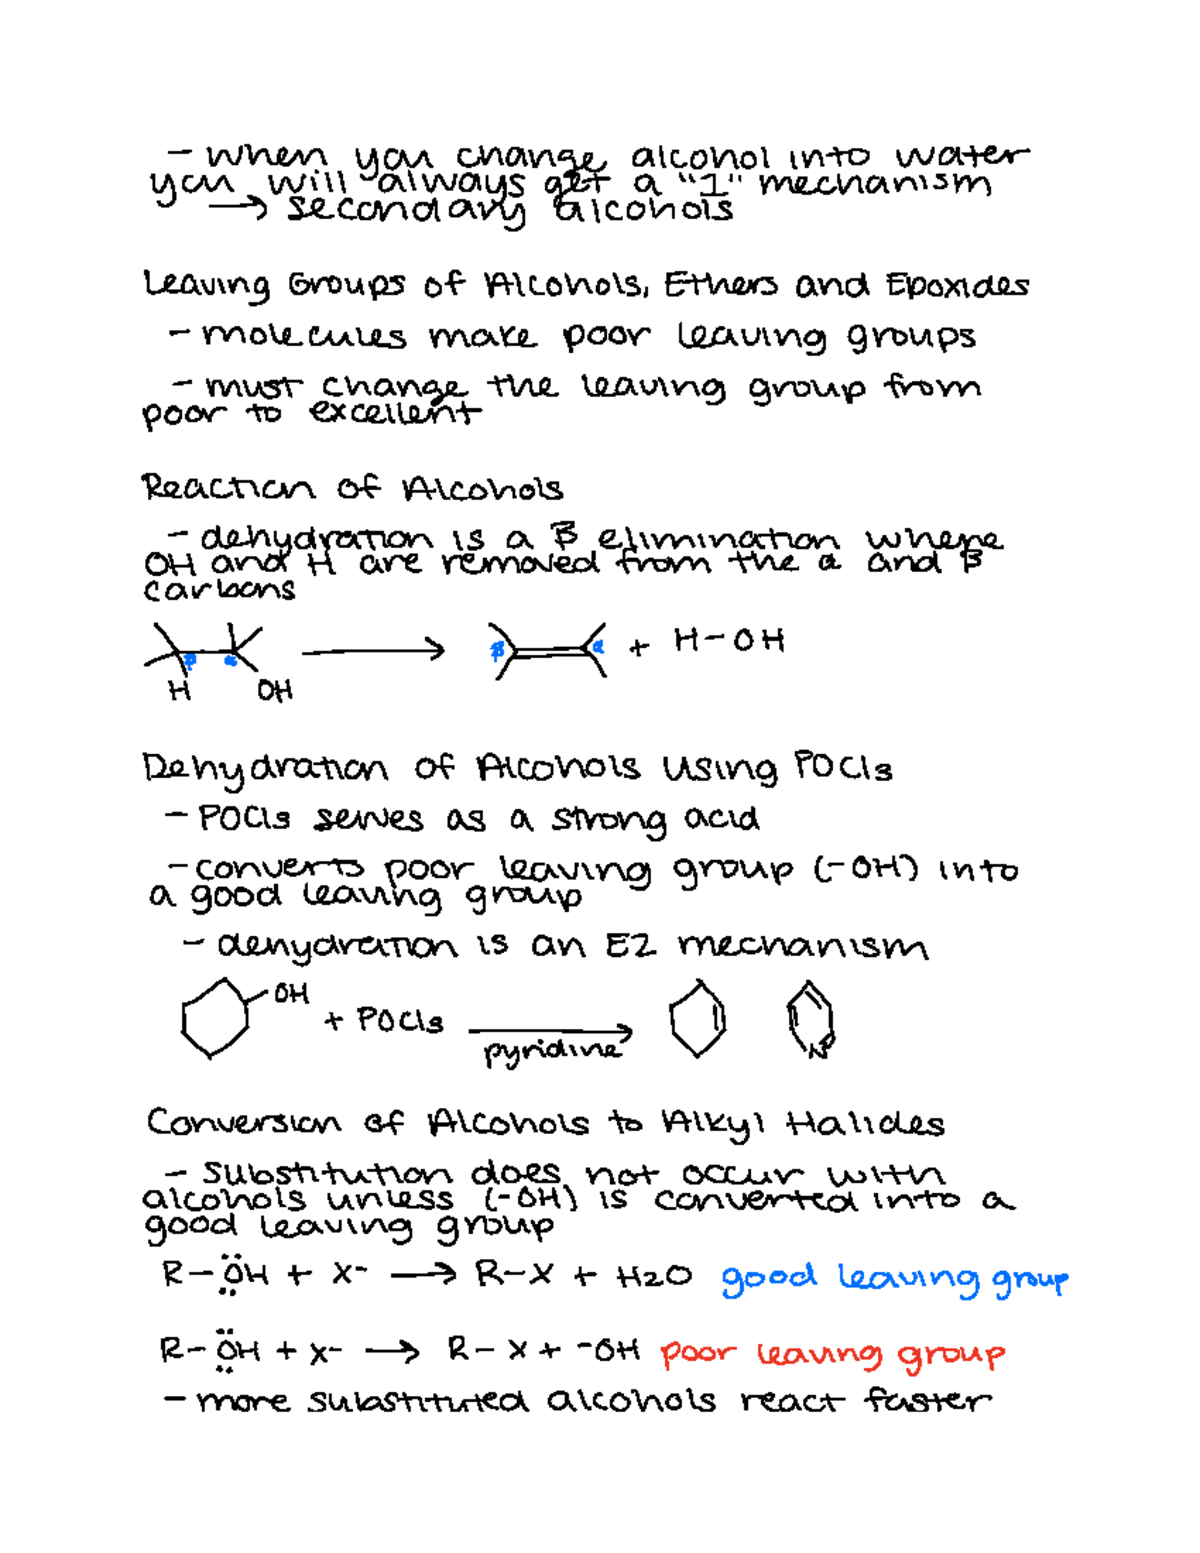 - when you change alcohol into water
you will always get a "1" mechanism
→ secondary alcohols
Leaving Groups of Alcohols, Ethers and Epoxides
- molecules make poor leaving groups
- must change the leaving group from
poor to excellent
Reaction of Alcohols
- dehydration is a β elimination where
OH and H are removed from the α and β
carbons
β α → β α + H-OH
H OH
Dehydration of Alcohols Using POCl3
- POCl3 serves as a strong acid
- converts poor leaving group (-OH) into
a good leaving group
- dehydration is an E2 mechanism
OH + POCl3 → N
pyridine
Conversion of Alcohols to Alkyl Halides
- substitution does not occur with
alcohols unless (-OH) is converted into a
good leaving group
R-ÖH + X- → R-X + H2O good leaving group
R-ÖH + X- → R-X + -OH poor leaving group
- more substituted alcohols react faster